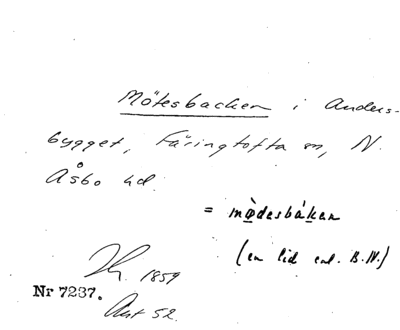 Mötesbacken i Anders-
bygget, Färingtofta sn, N.
Åsbo hd.
= mø̀desbáken
(en lid enl. B.N.)
1859
Nr 7237.
Ant 52.